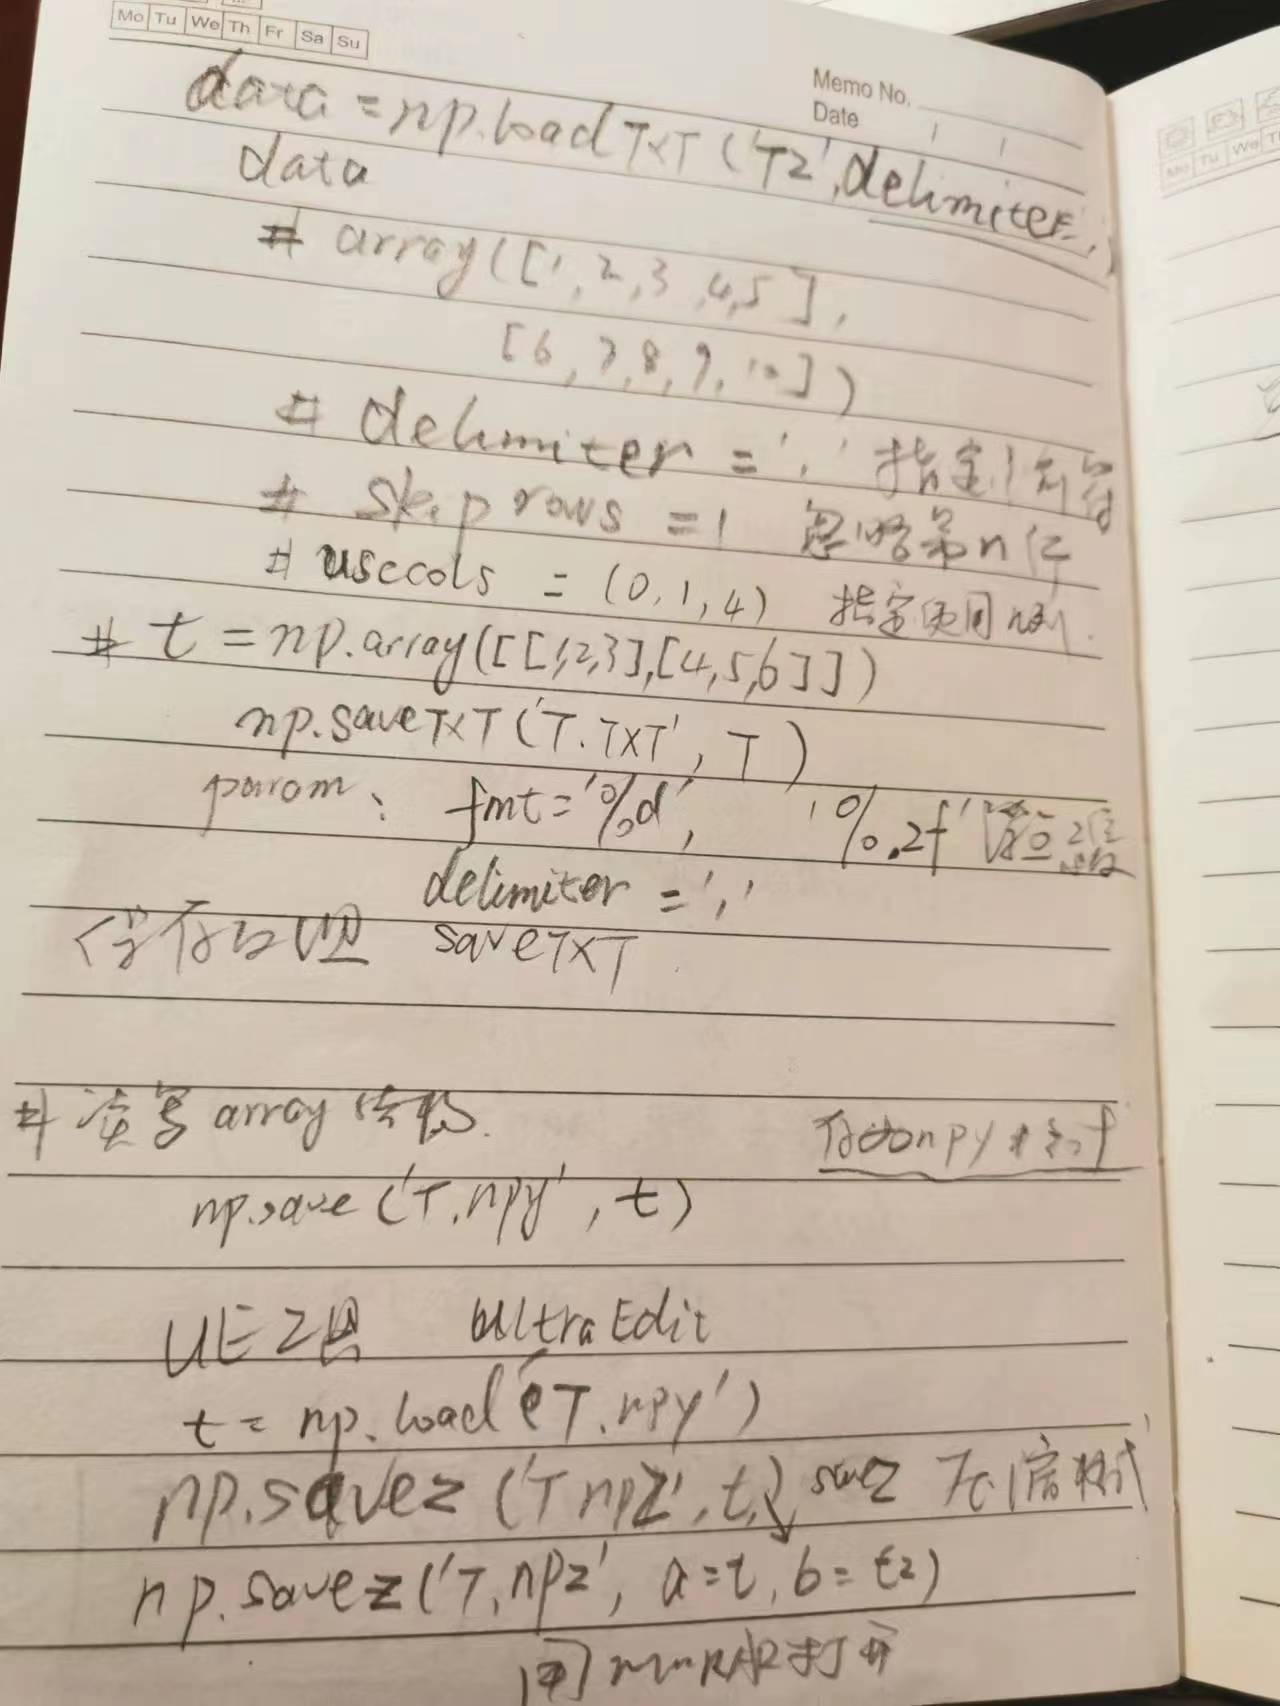 Mo Tu We Th Fr Sa Su
Memo No.
Date / /
data = np.loadTxT('T2',delimiter=','
data
# array([1,2,3,4,5],
[6,7,8,9,10])
# delimiter = ',' 指定分割符
# skip rows = 1 忽略第n行
# usecols = (0,1,4) 指定使用n列.
# t = np.array([[1,2,3],[4,5,6]])
np.saveTxT('T.TxT', T)
param: fmt='%d', '%.2f'
delimiter = ','
saveTXT
# 读写array
np.save('T.npy', t)
存为npy格式
UE工具 UltraEdit
t = np.load('T.npy')
np.savez('T npz', t,) savez 格式
np.savez('T,npz', a=t, b=t2)
用 打开
Mo Tu We